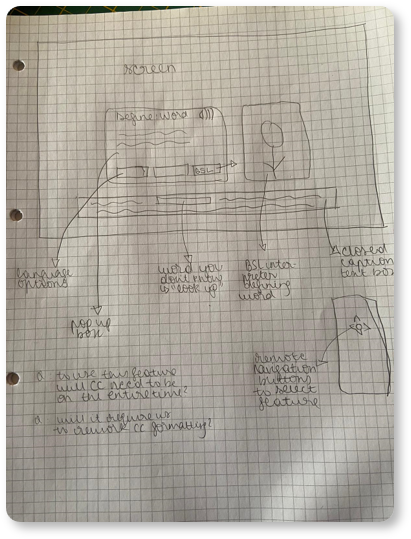 screen
Define Word
BSL
language
options
pop up
box
word you
dont know
to "look up"
BSL inter-
preter
defining
word
closed
caption
text box
remote
navigation
buttons
to select
feature
to use this feature
will CC need to be
on the entire time?
will it require us
to rework CC formatting?